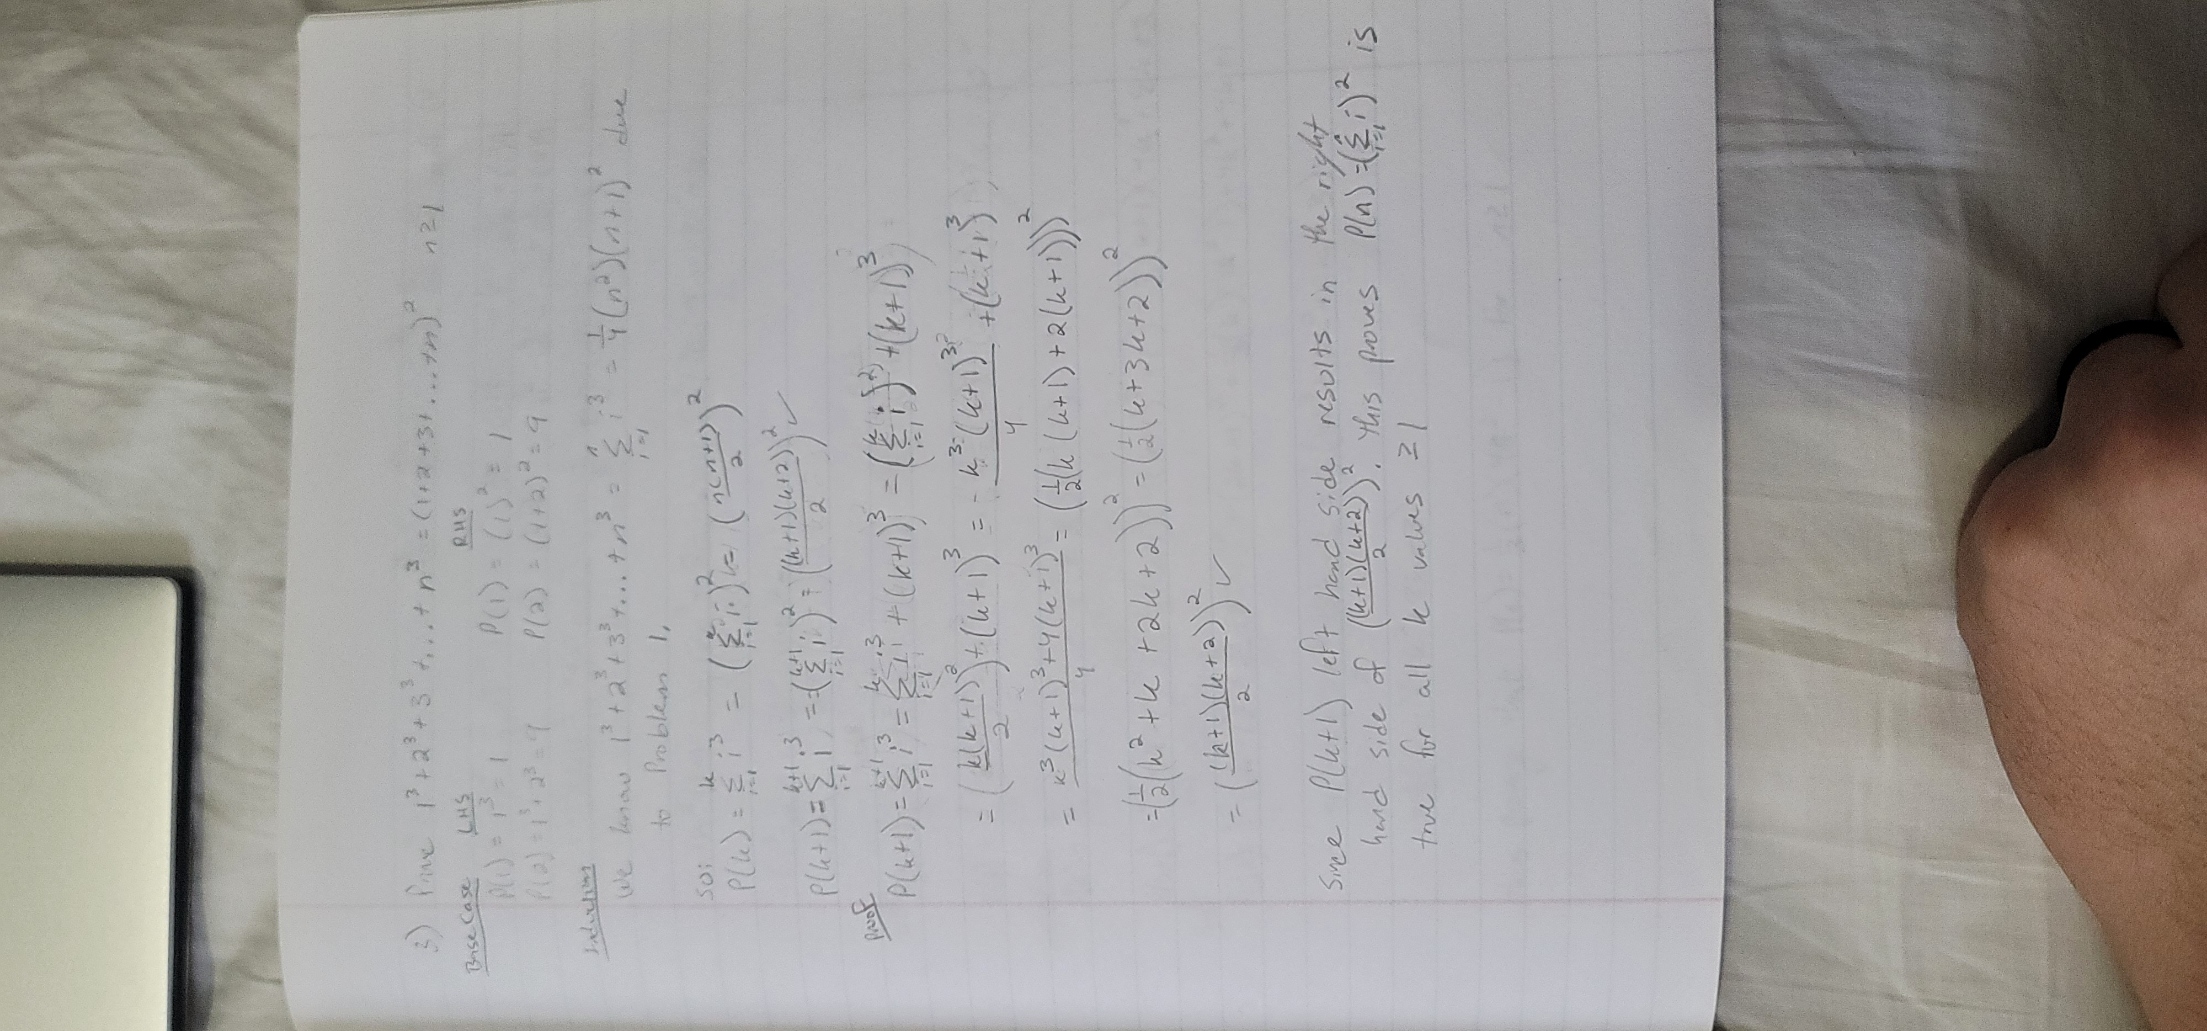 3) Prove 1³+2³+3³+...+n³ = (1+2+3+...+n)² n≥1
Base Case LHS RHS
P(1) = 1³ = 1 P(1) = (1)² = 1
P(2) = 1³+2³ = 9 P(2) = (1+2)² = 9
Induction
We know 1³+2³+3³+...+n³ = Σ_{i=1}^{n} i³ = 1/4(n²)(n+1)² due
to Problem 1.
So:
P(k) = Σ_{i=1}^{k} i³ = (Σ_{i=1}^{k} i)² = (n(n+1)/2)²
P(k+1) = Σ_{i=1}^{k+1} i³ = (Σ_{i=1}^{k+1} i)² = ((k+1)(k+2)/2)² ✓
Proof
P(k+1) = Σ_{i=1}^{k+1} i³ = Σ_{i=1}^{k} i³ + (k+1)³ = (Σ_{i=1}^{k} i)² + (k+1)³
= (k(k+1)/2)² + (k+1)³ = k³(k+1)³/4 + (k+1)³
= k³(k+1)³+4(k+1)³/4 = (1/2(k(k+1)+2(k+1)))²
= (1/2(k²+k+2k+2))² = (1/2(k+3k+2))²
= ((k+1)(k+2)/2)² ✓
Since P(k+1) left hand side results in the right
hand side of ((k+1)(k+2)/2)². This proves P(n) = (Σ_{i=1}^{n} i)² is
true for all k values ≥1